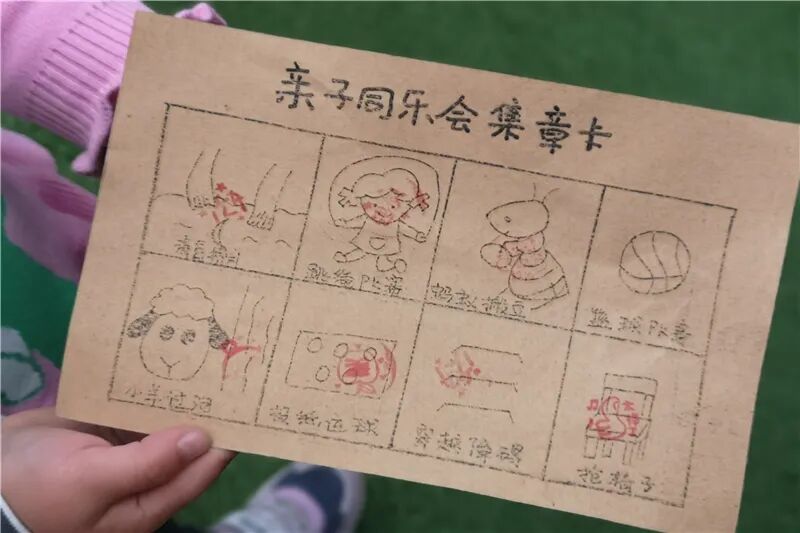 亲子同乐会集章卡
跳绳比赛
蚂蚁搬豆
篮球比赛
小羊过河
报纸运球
穿越障碍
抢椅子